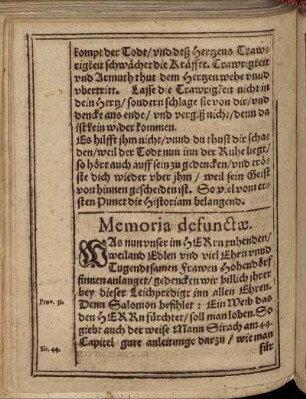 kompt der Todt/ vnd deß Hertzens Traw-
rigkeit schwächet die Kräffte. Trawrigkeit
vnd Armuth thut dem Hertzen wehe vnnd
vbertritt. Lasse die Trawrigkeit nicht in
dein Hertz/ sondern schlage sie von dir/ vnd
dencke ans ende/ vnd vergiß nicht/ denn da
ist kein wider kommen.
Es hilfft jhn nicht/ vnnd du thust dir scha-
den/ weil der Todt nun inn der Ruhe liegt/
so hört auch auff sein zu gedencken/ vnd trö-
ste dich wieder vber jhn/ weil sein Geist
von hinnen gescheiden ist. So viel vom er-
sten Punct die Historiam belangend.
Memoria defunctæ.
WAs nun vnser im HERrn ruhenden/
weiland Edlen vnd viel Ehrn vnnd
Tugendtsamen Frawen Hohendorf-
finnen anlanget/ gedencken wir billich jhrer
bey dieser Leichpredigt inn allen Ehren.
Prov. 31.
Denn Salomon befihlet: Ein Weib das
den HERRn fürchtet/ soll man loben. So
giebt auch der weise Mann Sirach am 44.
Sir. 44.
Capitel gute anleitunge darzu/ wie man
für